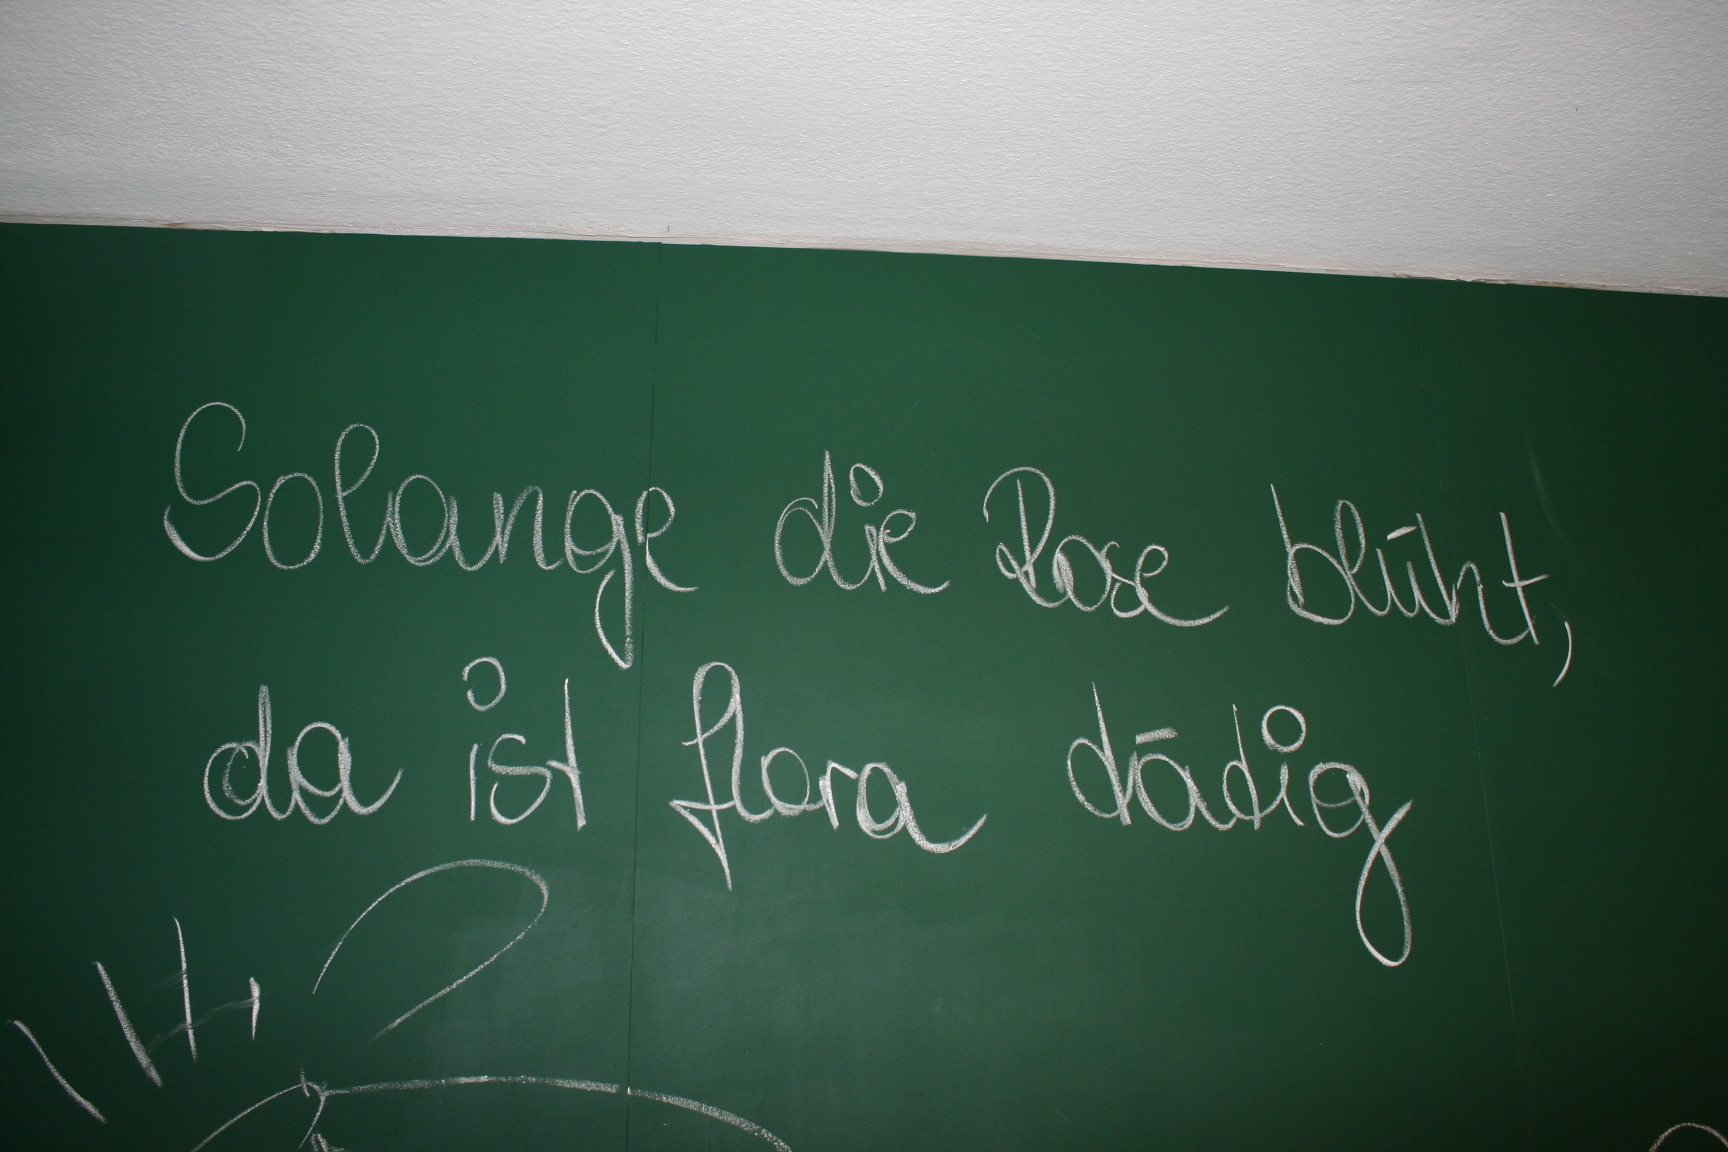 Solange die Rose blüht,
da ist flora dädig